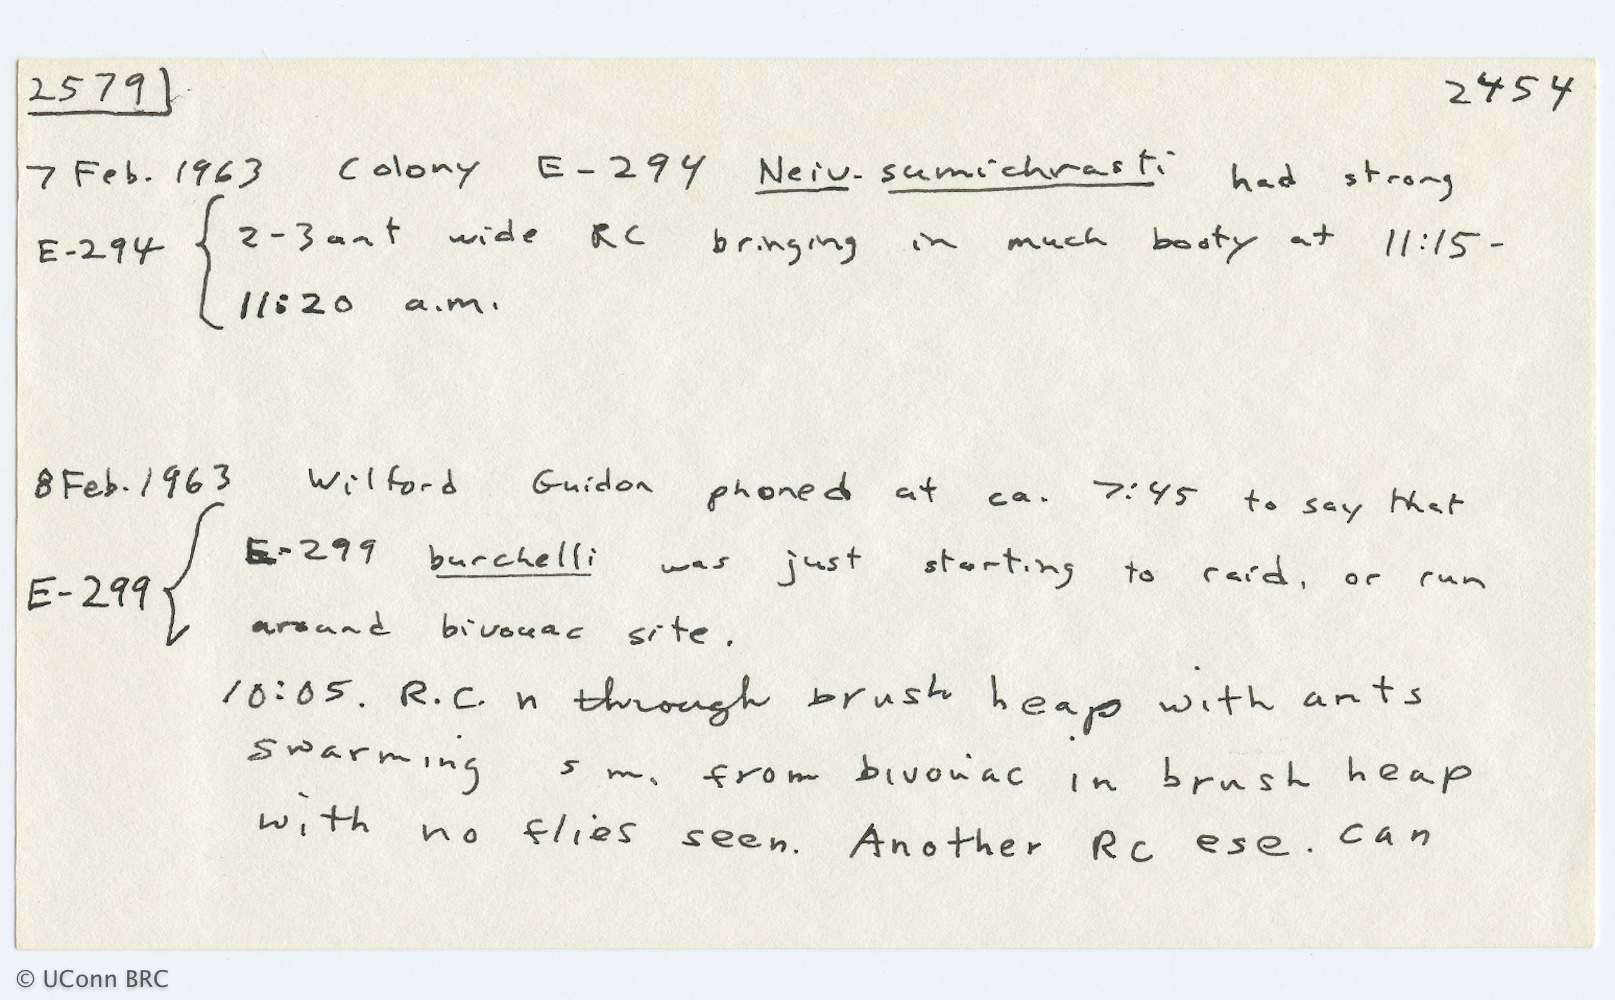 2579 2454
7 Feb. 1963 Colony E-294 Neiv. sumichrasti had strong
E-294 { 2-3 ant wide RC bringing in much booty at 11:15-
11:20 a.m.
8 Feb. 1963 Wilford Guidon phoned at ca. 7:45 to say that
E-299 burchelli was just starting to raid, or run
E-299 { around bivouac site.
10:05. R.C. n through brush heap with ants
swarming 5 m. from bivouac in brush heap
with no flies seen. Another RC ese. can
© UConn BRC